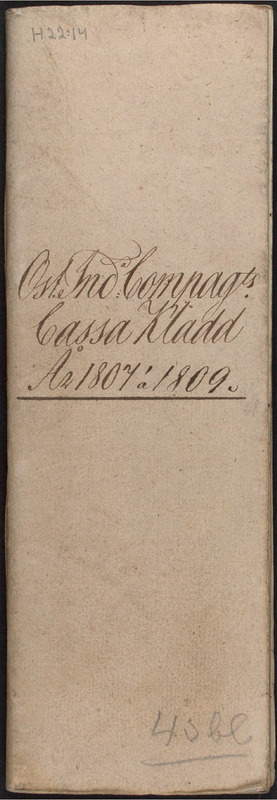 H22:14
Ost Ind.ª Compag.ts
Cassa Kladd
År 1807 à 1809.
43 bl